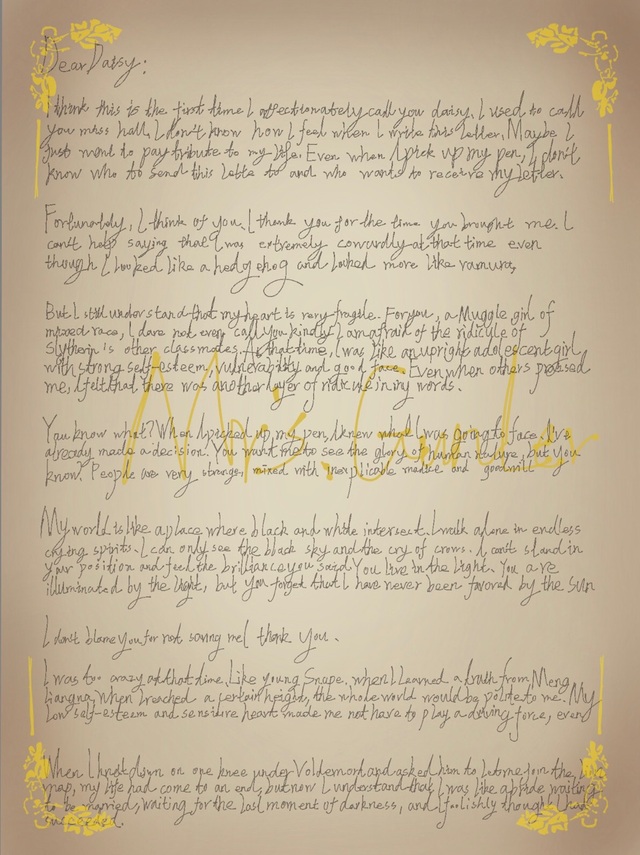 Dear Daisy:
I think this is the first time I affectionately call you daisy. I used to call
you miss hall. I don't know how I feel when I write this letter. Maybe I
just want to pay tribute to my life. Even when I pick up my pen, I don't
know who to send this lette to and who wants to receive my letter.
Fortunatdy, I think of you. I thank you for the time you brought me. I
can't help saying that I was extremely cowardly at that time even
though I looked like a hedgehog and looked more like
But I still understand that my heart is very fragile. For you, a Muggle girl of
mixed race, I dare not even call you kindly. I am afraid of the ridicule of
Slytherin is other classmates. At that time, I was like an upright adolescent girl
with strong self-esteem, vulnerability and good face. Even when others praised
me, I felt that there was another layer of ridicule in my words.
You know what? When I picked up my pen, I knew what I was going to face. I've
already made a decision. You want me to see the glory of human nature, but you
know? People are very strange, mixed with inexplicable malice and goodwill
My world is like a place where black and white intersect. I walk alone in endless
crying spirits. I can only see the black sky and the cry of crows. I can't stand in
your position and feel the brilliance you said You live in the light. You are
illuminated by the light, but you forget that I have never been favored by the sun
I don't blame you for not saving me I thank you.
I was too crazy at that time. Like young Snape. when I learned a truth from Meng
when I reached a certain height, the whole world would be polite to me. My
low self-esteem and sensitive heart made me not have to play a driving force, even
When I knelt down on one knee under Voldemord and asked him to
map, my life had come to an end, but now I understand that I was like a bride waiting
to be married, waiting for the last moment of darkness, and I foolishly thought I had
succeeded.